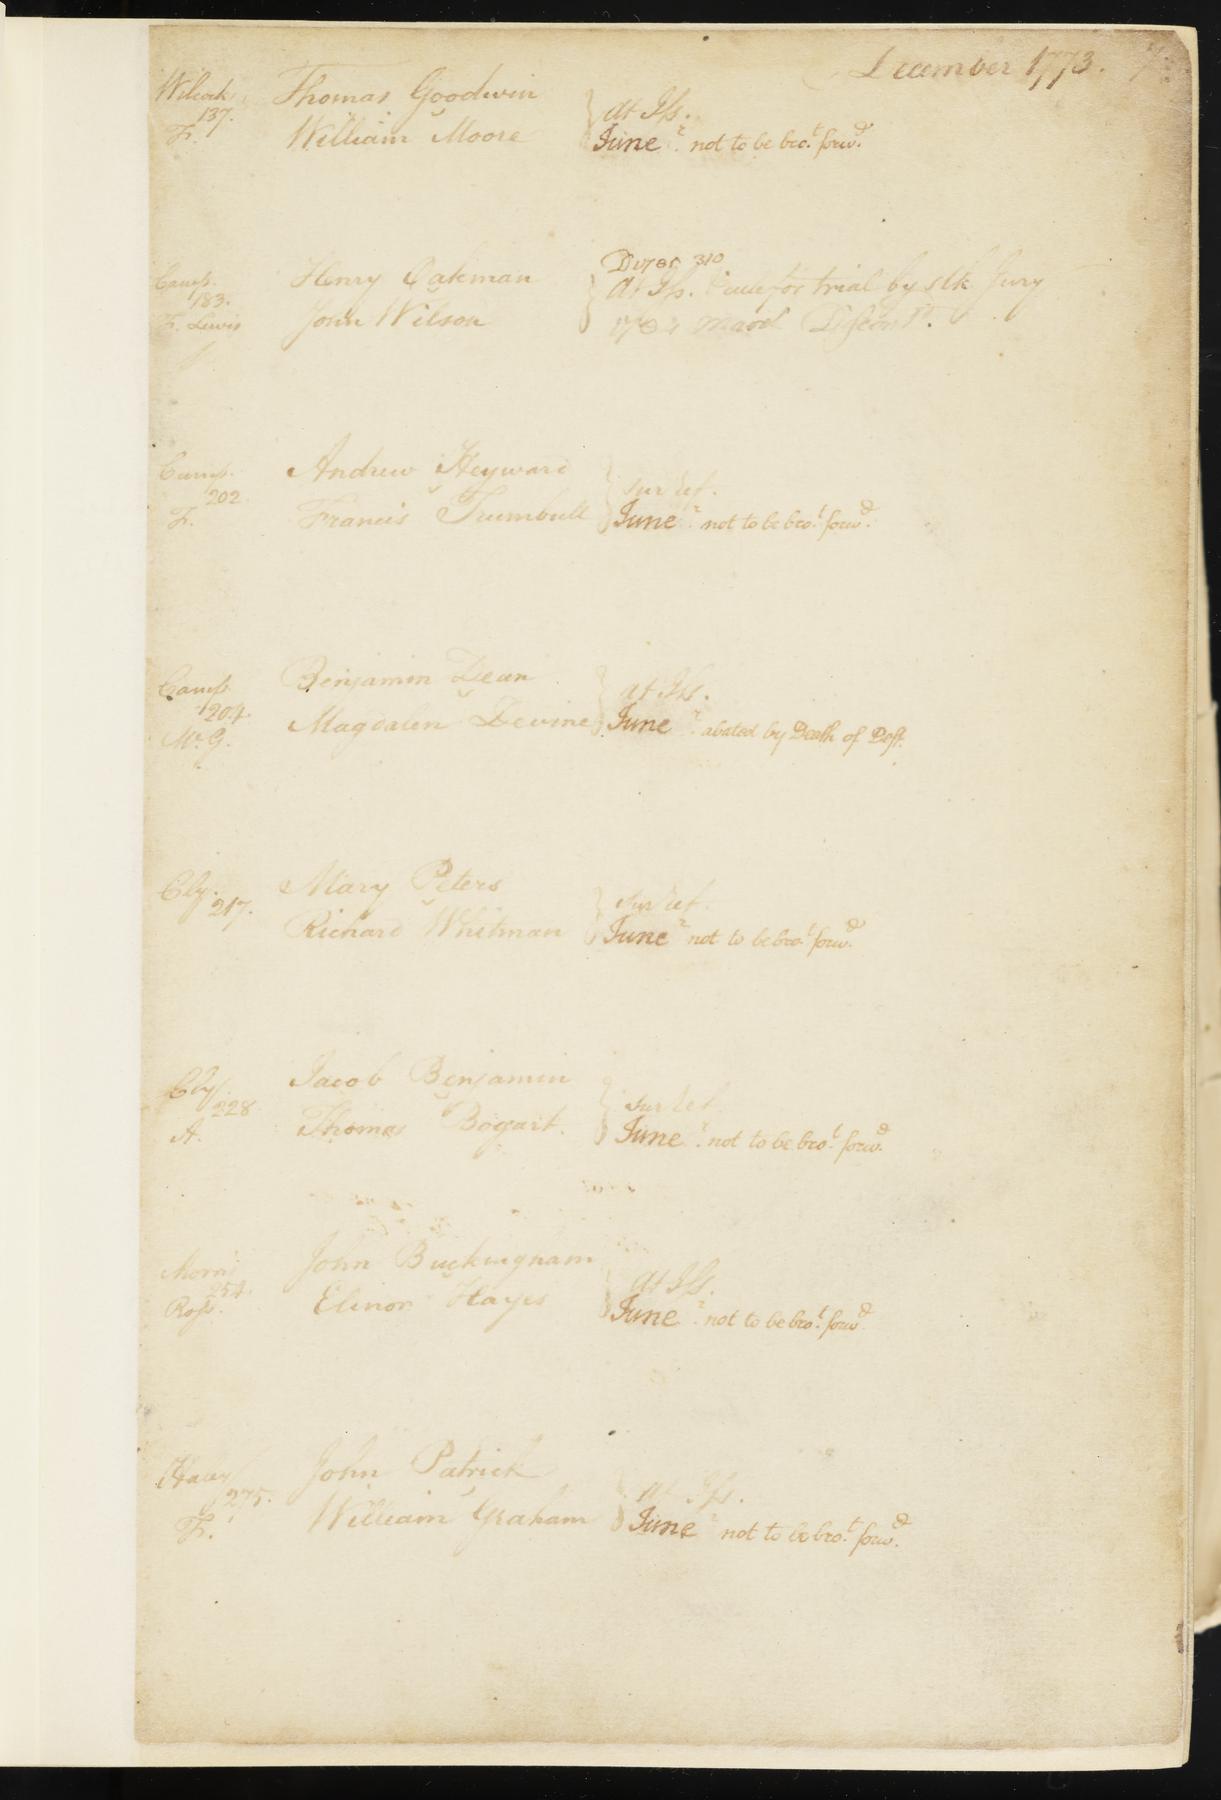 December 1773.
Wilcock
137.
F.
Thomas Goodwin
William Moore
at Iss.
June r. not to be bro.t forw.d
Camp.
183.
F. Lewis
Henry Oakman
John Wilson
310
at Iss. for trial by stk Jury
Camp.
202
F.
Andrew Heyward
Francis Trumbull
sur ref.
June r. not to be bro.t forw.d
Camp.
204.
Mc. G.
Benjamin Dean
Magdalen Devine
at Iss.
June r. abated by Death of Deft.
Cly.
217.
Mary Peters
Richard Whitman
sur ref.
June r not to be bro.t forw.d
Cly.
228
A.
Jacob Benjamin
Thomas Bogart.
sur ref
June r. not to be bro.t forw.d
Morris
254.
Ross.
John Buckingham
Elinor Hayes
at Iss.
June r. not to be bro.t forw.d
275.
F.
John Patrick
William Graham
at Iss.
June r not to be bro.t forw.d